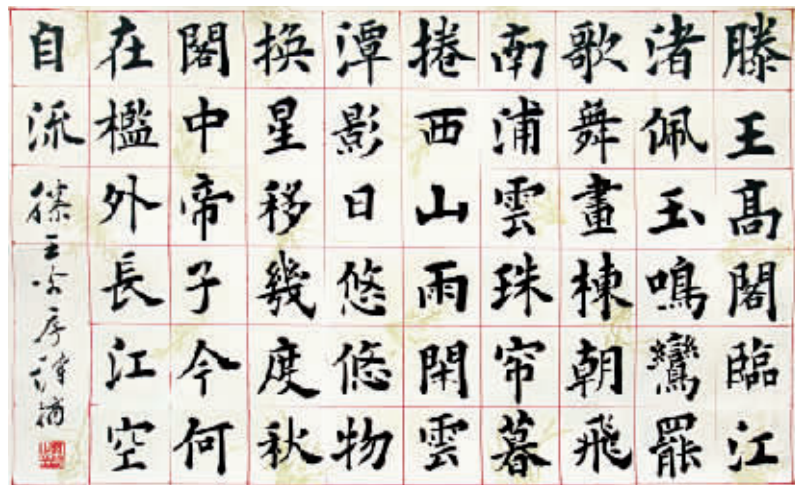 滕王髙閣臨江
渚佩玉鳴鸞罷
歌舞畫棟朝飛
南浦雲珠帘暮
捲西山雨閑雲
潭影日悠悠物
换星移幾度秋
閣中帝子今何
在檻外長江空
自流
滕王阁序